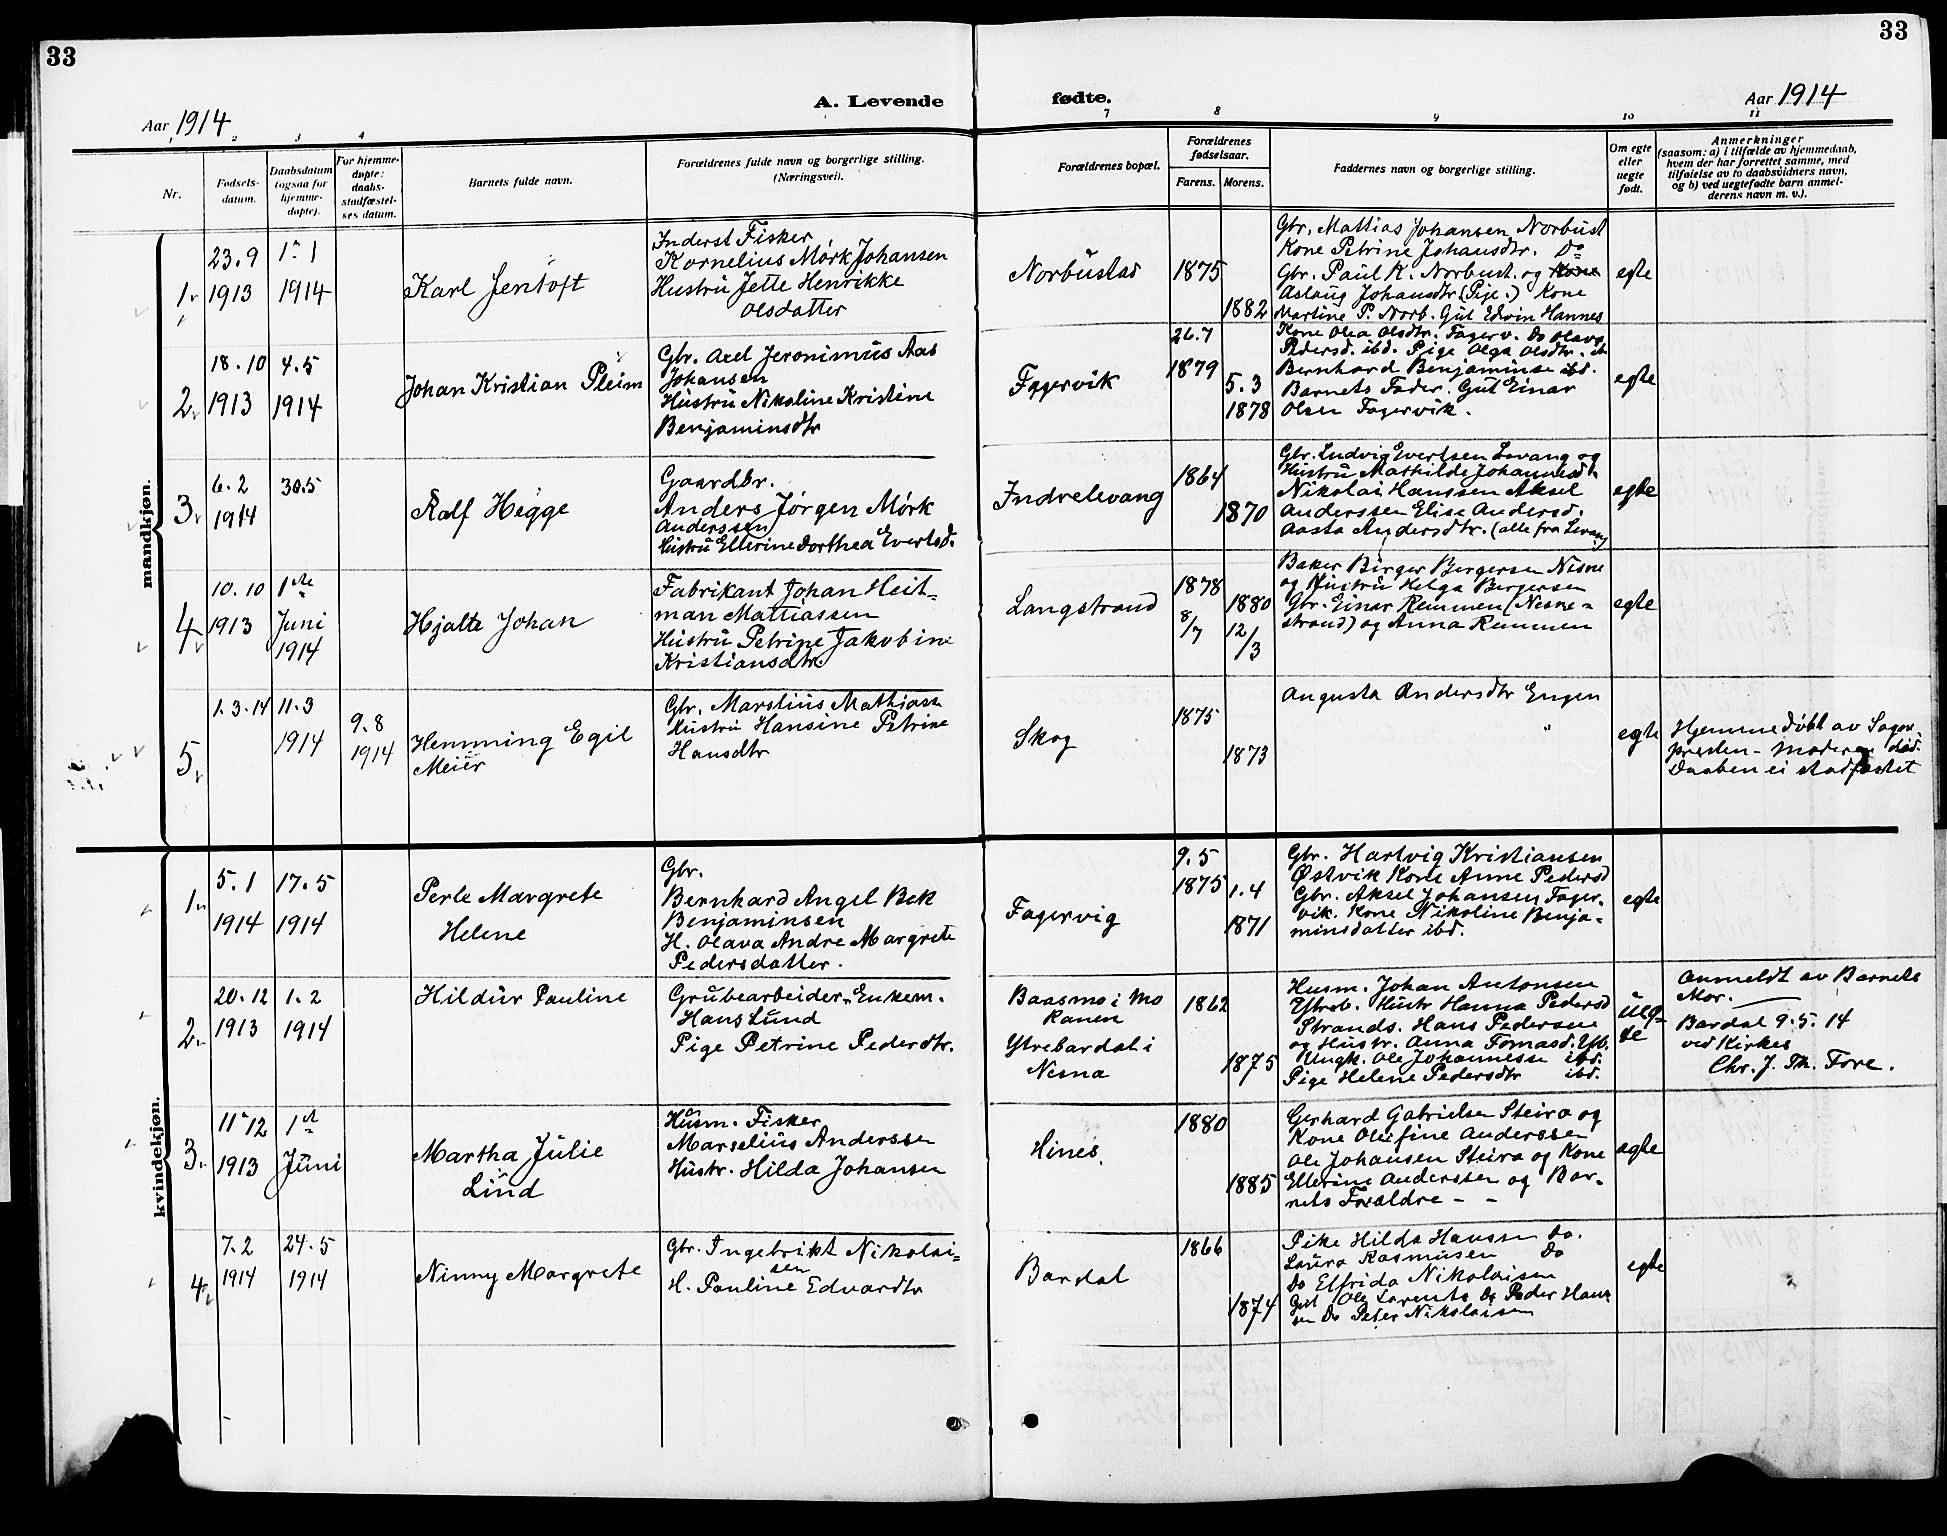 33
33
A. Levende fødte.
Aar 1914
Aar 1914
1 2 3 4 7 8 9 10 11
Nr.
Fødsels-
datum.
Daabsdatum
(ogsaa for
hjemme-
døpte).
For hjemme-
døpte:
daabs-
stadfæstel-
ses datum.
Barnets fulde navn.
Forældrenes fulde navn og borgerlige stilling.
(Næringsvei).
Forældrenes bopæl.
Forældrenes
fødselsaar.
Farens. Morens.
Faddernes navn og borgerlige stilling.
Om egte
eller
uegte
født.
Anmerkninger
(saasom: a) i tilfælde av hjemmedaab,
hvem der har forrettet samme, med
tilføielse av to daabsvidners navn,
og b) ved uegtefødte barn anmel-
derens navn m. v.).
mandkjøn.
1
23.9
1913
1. 1
1914
Karl Jentoft
Inderst Fisker
Kornelius Mørk Johansen
Hustru Jette Henrikke
Olsdatter
Norbustad
1875
1882
Gbr. Mattias Johansen Norbust
Kone Petrine Johansdtr. Do
Gbr. Paul K. Norbust. og Kone
Aslaug Johansdtr (Pige.) Kone
Martine P. Norb. Gut Edvin Hannes
egte
2
18.10
1913
4.5
1914
Johan Kristian Pleim
Gbr. Axel Jeronimus Aas
Johansen
Hustru Nikoline Kristine
Benjaminsdtr
Fagervik
26.7
1879
5.3
1878
Kone Olea Olsdtr. Fagerv. Do Olava
Pedersd. ibd. Pige Olga Olsdtr. ib
Bernhard Benjaminse ibd.
Barnets Fader. Gut Einar
Olsen Fagervik.
egte
3
6.2
1914
30.5
Ralf Hegge
Gaardbr.
Anders Jørgen Mørk
Anderssen
Hustru Ellerine Dorthea Evertsd.
Indrelevang
1864
1870
Gbr. Ludvig Evertsen Levang og
Hustru Mathilde Johannesd
Nikolai Hanssen Aksel
Anderssen Elise Andersd.
Aasta Andersdtr. (alle fra Levang
egte
4
10.10
1913
1ste
Juni
1914
Hjalte Johan
Fabrikant Johan Heit-
man Mattiassen
Hustru Petrine Jakobine
Kristiansdtr.
Langstrand
1878
8/7
1880
12/3
Baker Birger Bergersen Nesne
og Hustru Helga Bergersen
Gbr. Einar Remmen (Nesne-
strand) og Anna Remmen
egte
5
1.3.14
11.3
1914
9.8
1914
Hemming Egil
Meier
Gbr. Marslius Mathiass
Hustru Hansine Petrine
Hansdtr
Skog
1875
1873
Augusta Andersdtr Engen
egte
Hjemmedøbt av Sogne-
presten - Moderen død.
Daaben ei stadfæstet
kvindekjøn.
1
5.1
1914
17.5
1914
Perle Margrete
Helene
Gbr.
Bernhard Angel Bek
Benjaminsen
H. Olava Andre Margrete
Pedersdatter.
Fagervig
9.5
1875
1.4
1871
Gbr. Hartvig Kristiansen
Østvik Kone Anne Pedersd
Gbr. Aksel Johansen Fager-
vik. Kone Nikoline Benja-
minsdatter ibd.
egte
2
20.12
1913
1.2
1914
Hildur Pauline
Grubearbeider, Enkem.
Hans Lund
Pige Petrine Pederdtr.
Baasmo i Mo
Ranen
Ytrebardal i
Nesna
1862
1875
Husm. Johan Antonsen
Ytreb. Hustr Hanna Pedersd
Strands. Hans Pedersen
og Hustr. Anna Tomasd. Ytb.
Ungk. Ole Johannesse ibd.
Pige Helene Pedersdtr ibd.
ueg-
te
Anmeldt av Barnets
Mor.
Bardal 9.5.14
ved Kirkes
Chr. J. Th. Fore.
3
11-12
1913
1st
Juni
Martha Julie
Lind
Husm. Fisker
Marselius Anderssen
Hustr. Hilda Johansen
Hines.
1880
1885
Gerhard Gabrielsen Steiro og
Kone Olufine Anderssen
Ole Johansen Steiro og Kone
Ellerine Anderssen og Bar-
nets Forældre - -
egte
4
7.2
1914
24.5
1914
Ninny Margrete
Gbr. Ingebrikt Nikolai-
sen
H. Pauline Edvardtr
Bardal
1866
1874
Pike Hilda Hanssen Do.
Laura Rasmusen Do
Do Elfrida Nikolaisen
Gut Ole Larents Do Peder Han-
sen Do Peter Nikolaisen
egte